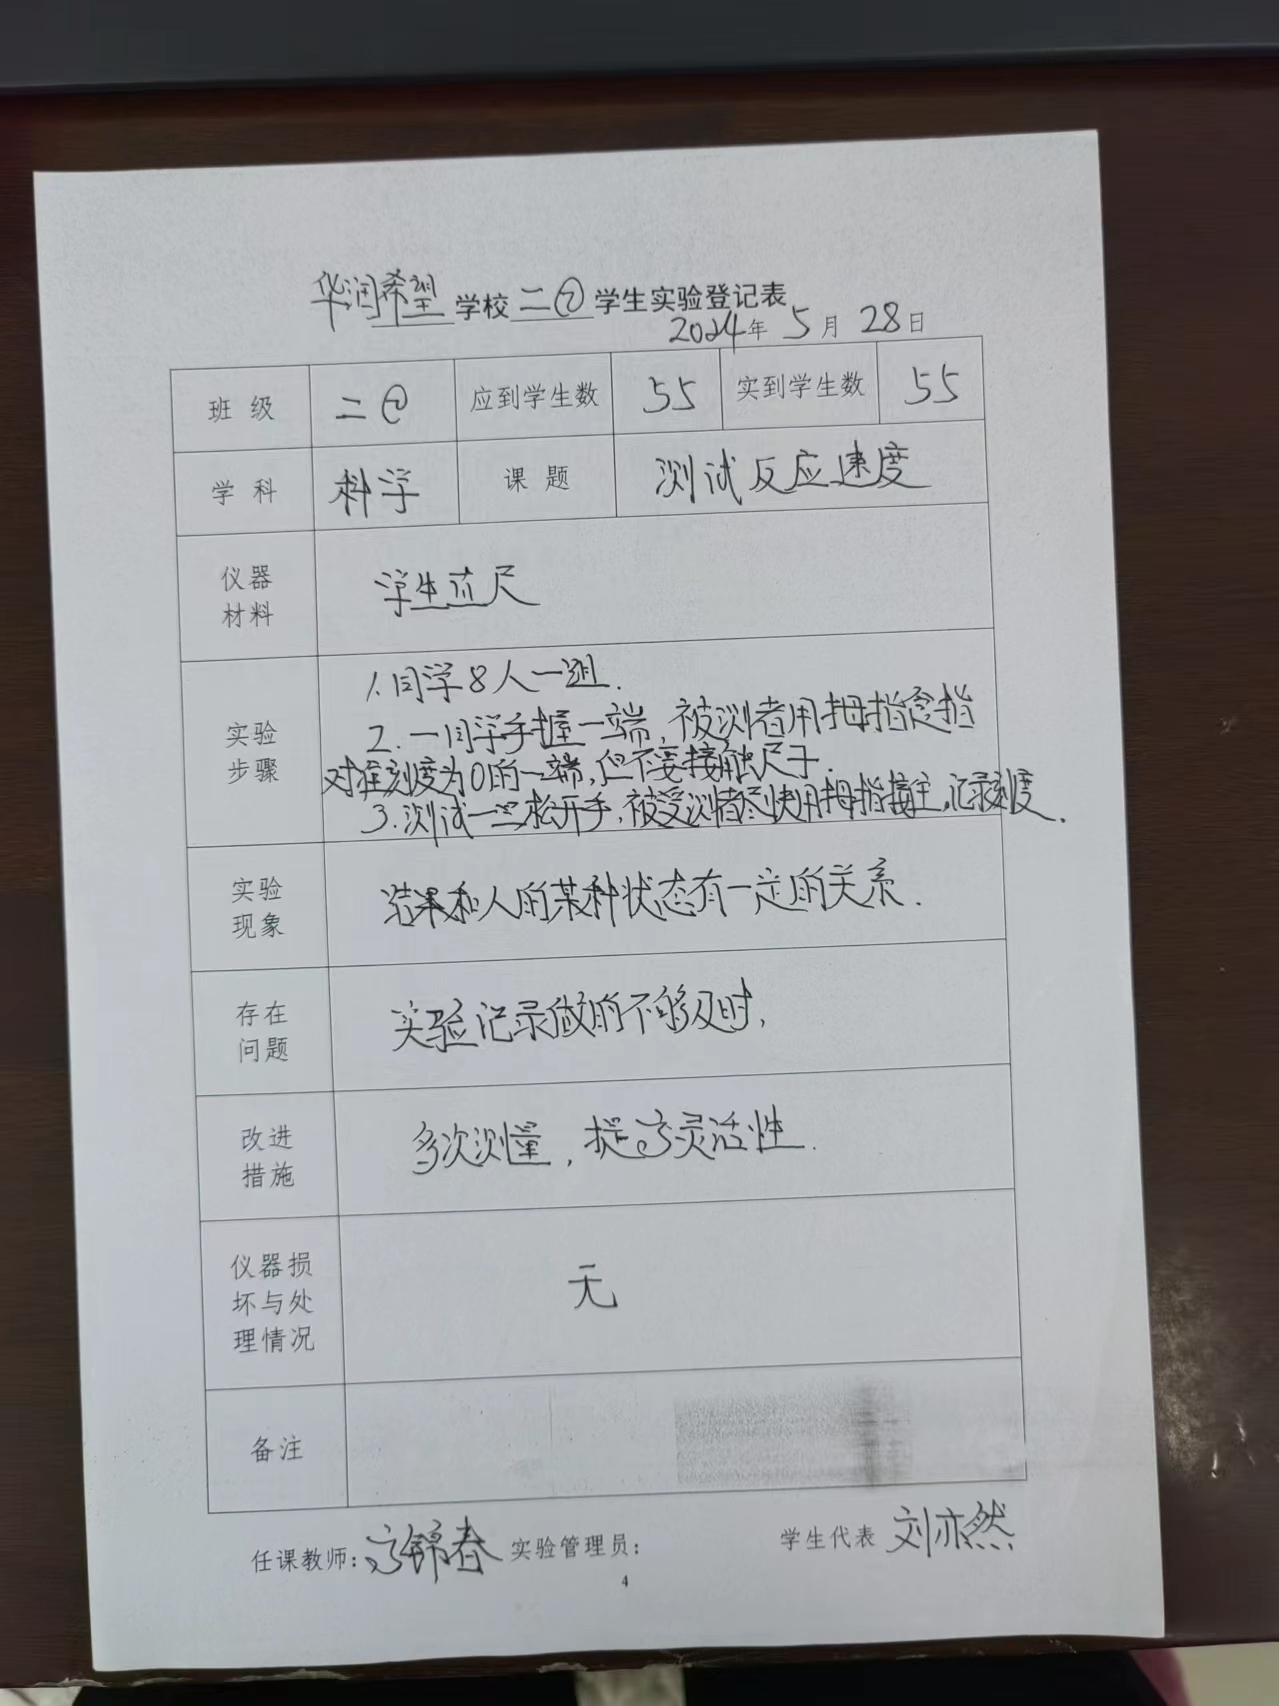 华润希望 学校 二⑦ 学生实验登记表
2024年 5月 28日
班级 二⑦ 应到学生数 55 实到学生数 55
学科 科学 课题 测试反应速度
仪器
材料
学生直尺
实验
步骤
1.同学8人一组.
2.一同学手握一端,被测者用拇指食指
对准刻度为0的一端,但不要接触尺子.
3.测试一旦松开手,被受测者尽快用拇指接住,记录刻度.
实验
现象
结果和人的某种状态有一定的关系.
存在
问题
实验记录做的不够及时,
改进
措施
多次测量,提高灵活性.
仪器损
坏与处
理情况
无
备注
任课教师:方锦春 实验管理员: 学生代表 刘亦然
4